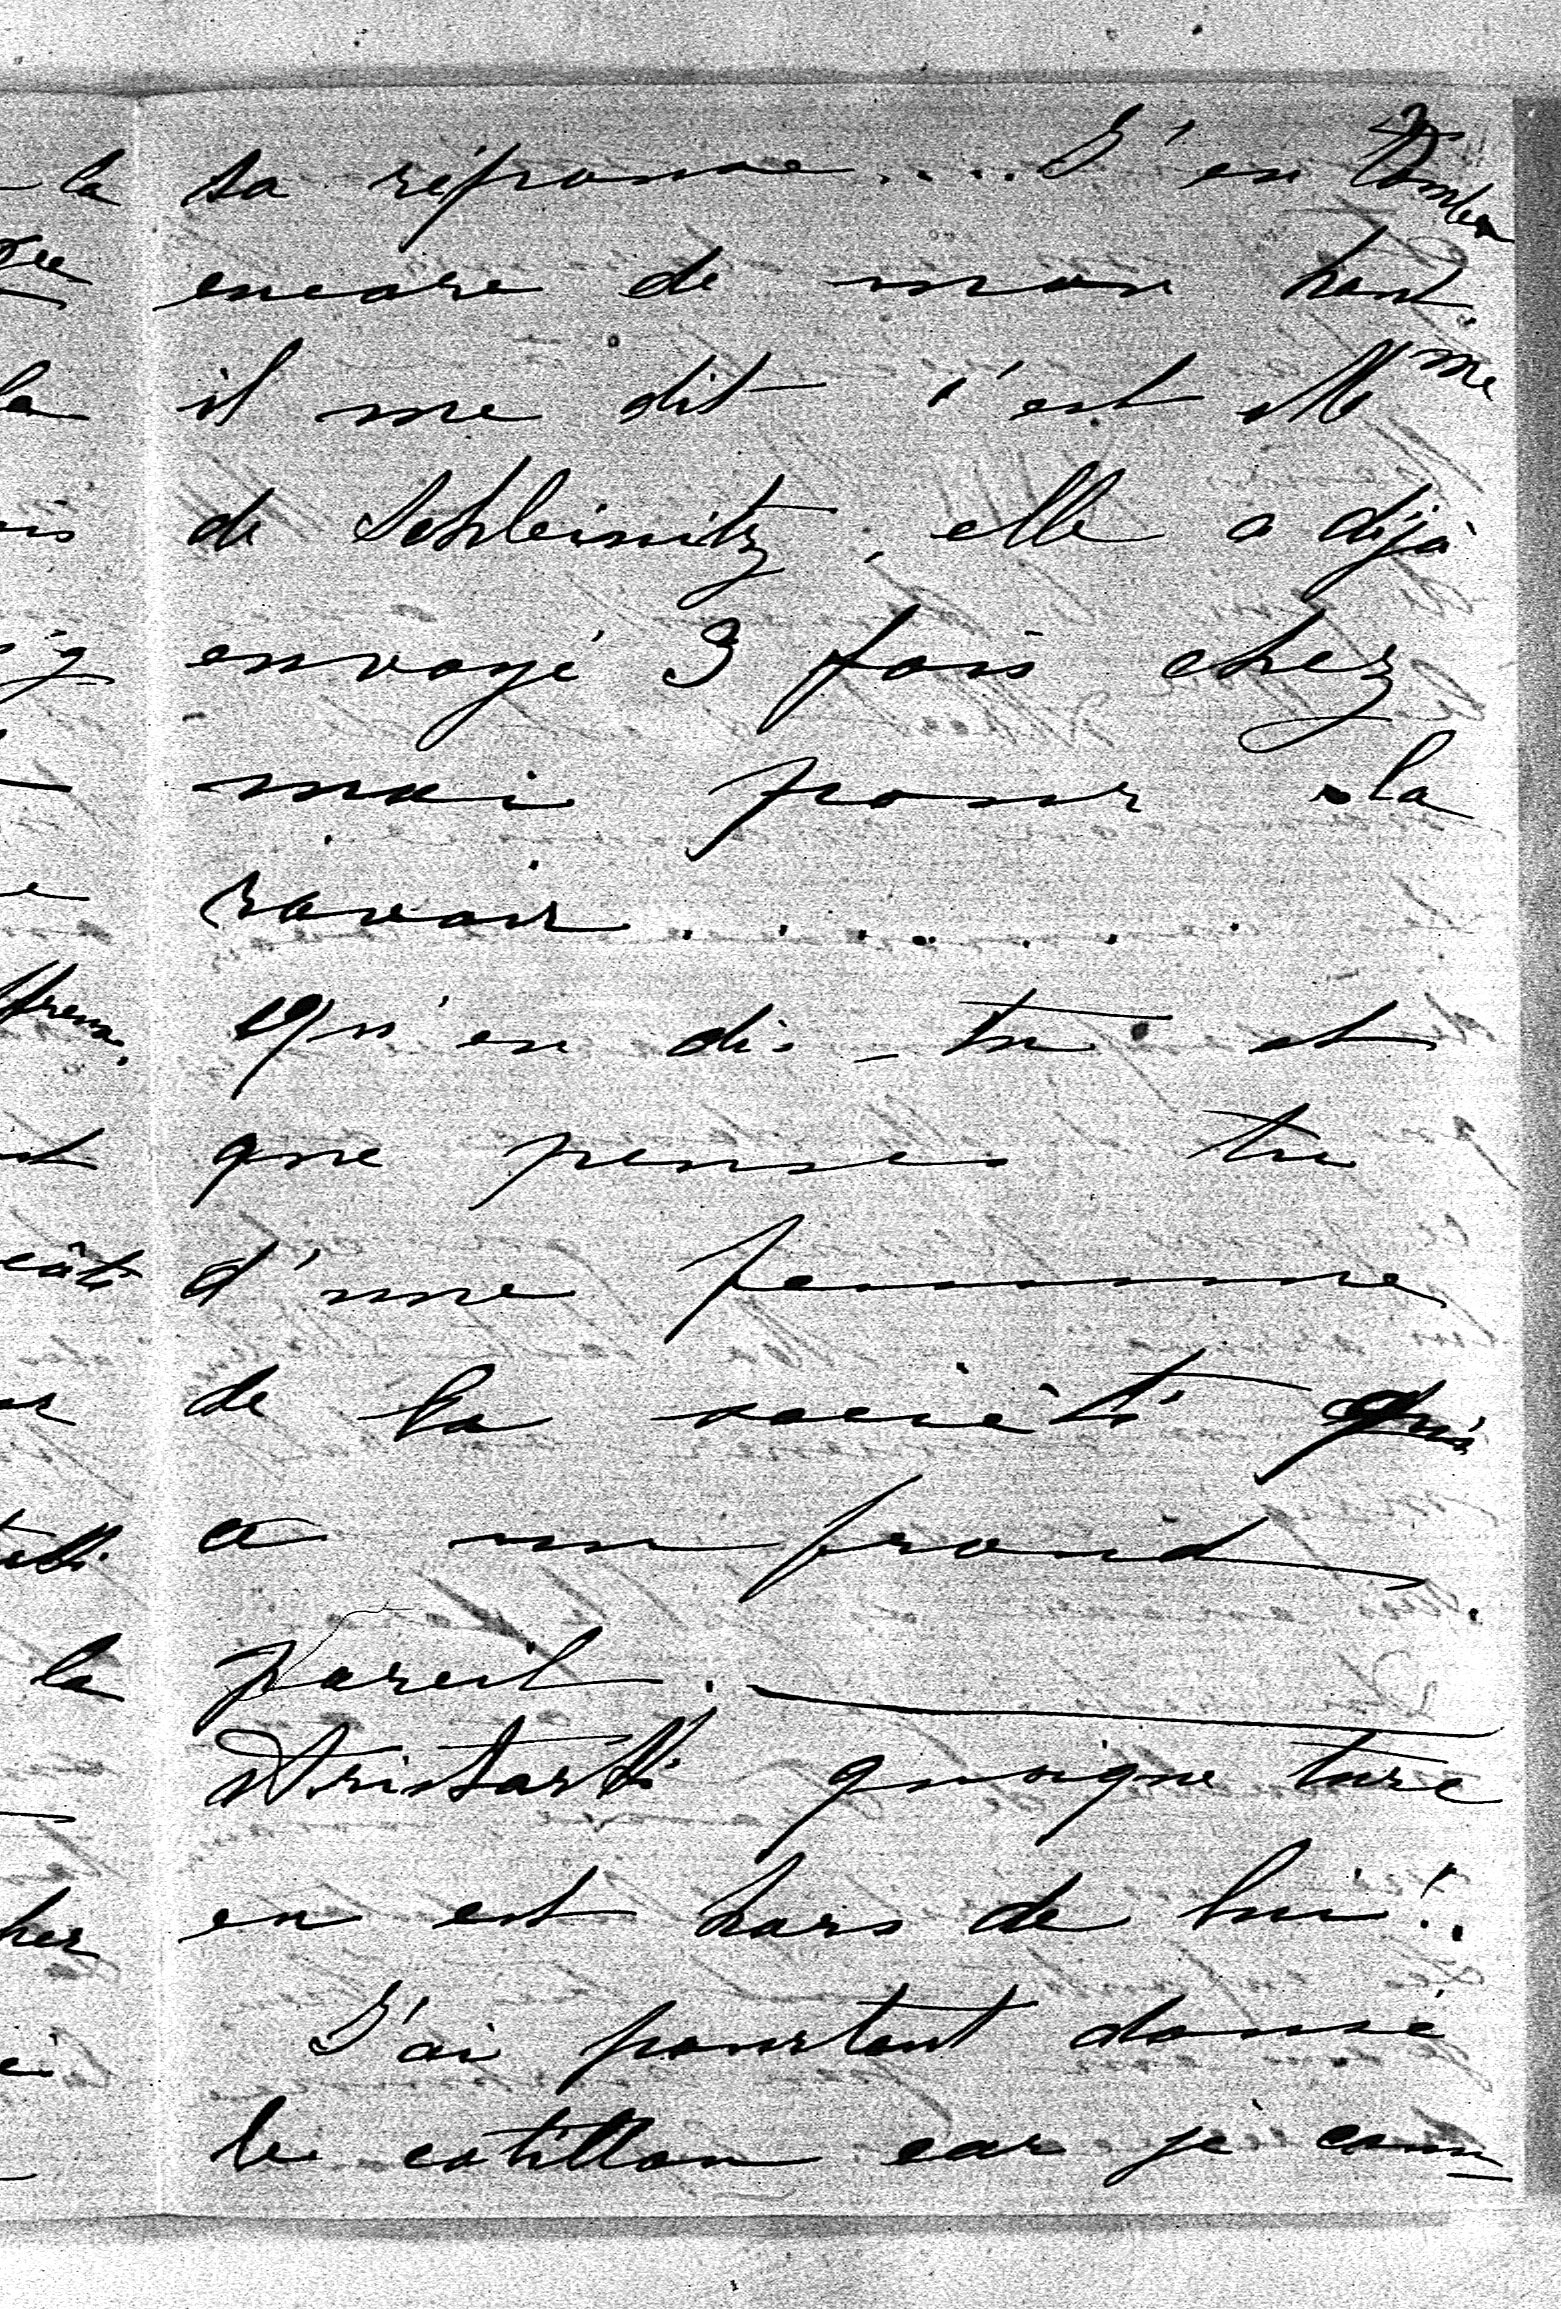 sa réponse.... J'en tombe
encore de mon haut.
il me dit c'est Mme
de Schleinitz, elle a déjà
envoyé 3 fois chez
moi pour la
ravoir.......
Qu'en dis-tu et
que penses tu
d'une femme
de la société qui
a un front
pareil.
Aristarchi quoique turc
en est hors de lui!.
J'ai pourtant dansé
le cotillon car je com